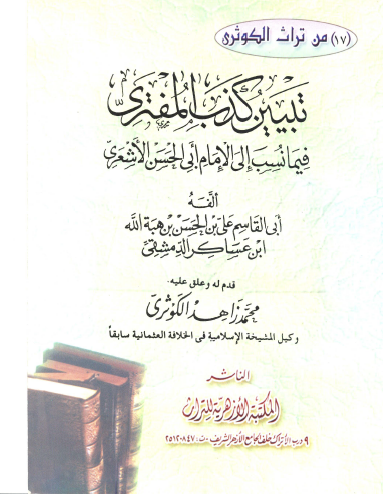 (١٧) من تراث الكوثرى
تبيين كذب المفترى
فيما نسب إلى الإمام أبى الحسن الأشعرى
ألفه
أبى القاسم على بن الحسن بن هبة الله
ابن عساكر الدمشقى
قدم له وعلق عليه:
محمد زاهد الكوثرى
وكيل المشيخة الإسلامية فى الخلافة العثمانية سابقاً
الناشر
المكتبة الأزهرية للتراث
٩ درب الأتراك خلف الجامع الأزهر الشريف - ت: ٢٥١٢٠٨٤٧